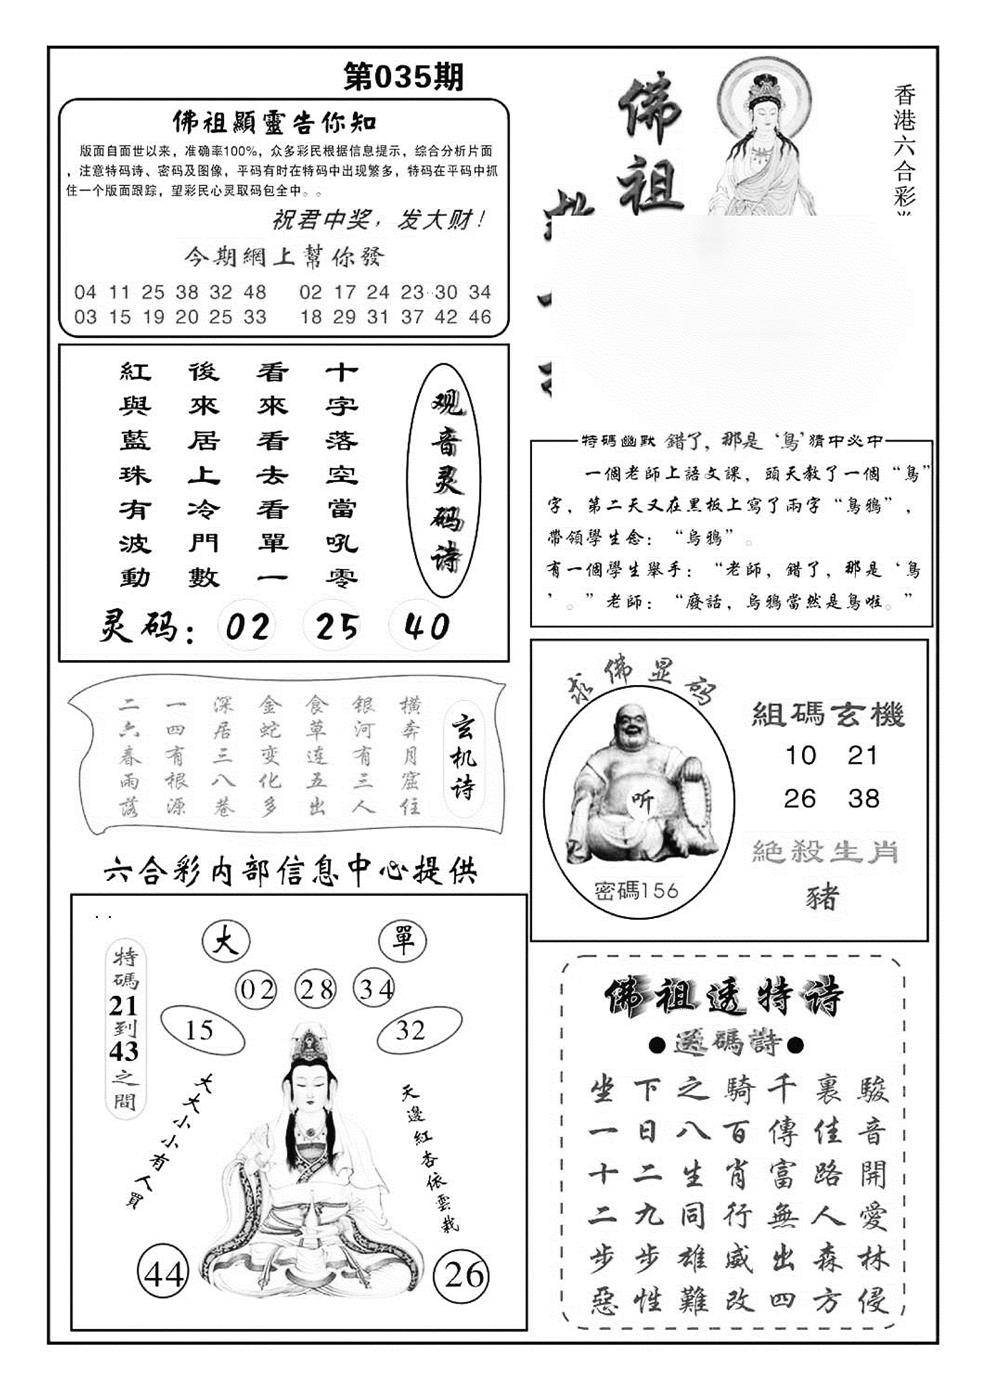 第035期
佛祖顯靈告你知
版面自面世以来，准确率100%，众多彩民根据信息提示，综合分析片面
，注意特码诗、密码及图像，平码有时在特码中出现繁多，特码在平码中抓
住一个版面跟踪，望彩民心灵取码包全中。。
祝君中奖，发大财！
今期網上幫你發
04 11 25 38 32 48 02 17 24 23 30 34
03 15 19 20 25 33 18 29 31 37 42 46
佛祖
香港六合彩
观音灵码诗
十字落空當吼零
看來看去看單一
後來居上冷門數
紅與藍珠有波動
灵码：02 25 40
特碼幽默 錯了，那是‘鳥’猜中必中
一個老師上語文課，頭天教了一個“鳥”
字，第二天又在黑板上寫了兩字“鳥鴉”，
帶領學生念：“烏鴉”。
有一個學生舉手：“老師，錯了，那是‘鳥
’。”老師：“廢話，烏鴉當然是鳥啦。”
玄机诗
横奔月窟住
银河有三人
食草连五出
金蛇变化多
深居三八巷
一四有根源
二六春雨落
求佛显码
听
密碼156
組碼玄機
10 21
26 38
絕殺生肖
豬
六合彩内部信息中心提供
大
單
02 28 34
15
32
特碼21到43之間
大大小小有人買
天邊紅杏依雲栽
44
26
佛祖透特诗
●送碼詩●
坐下之騎千裏駿
一日八百傳佳音
十二生肖富路開
二九同行無人愛
步步雄威出森林
惡性難改四方侵